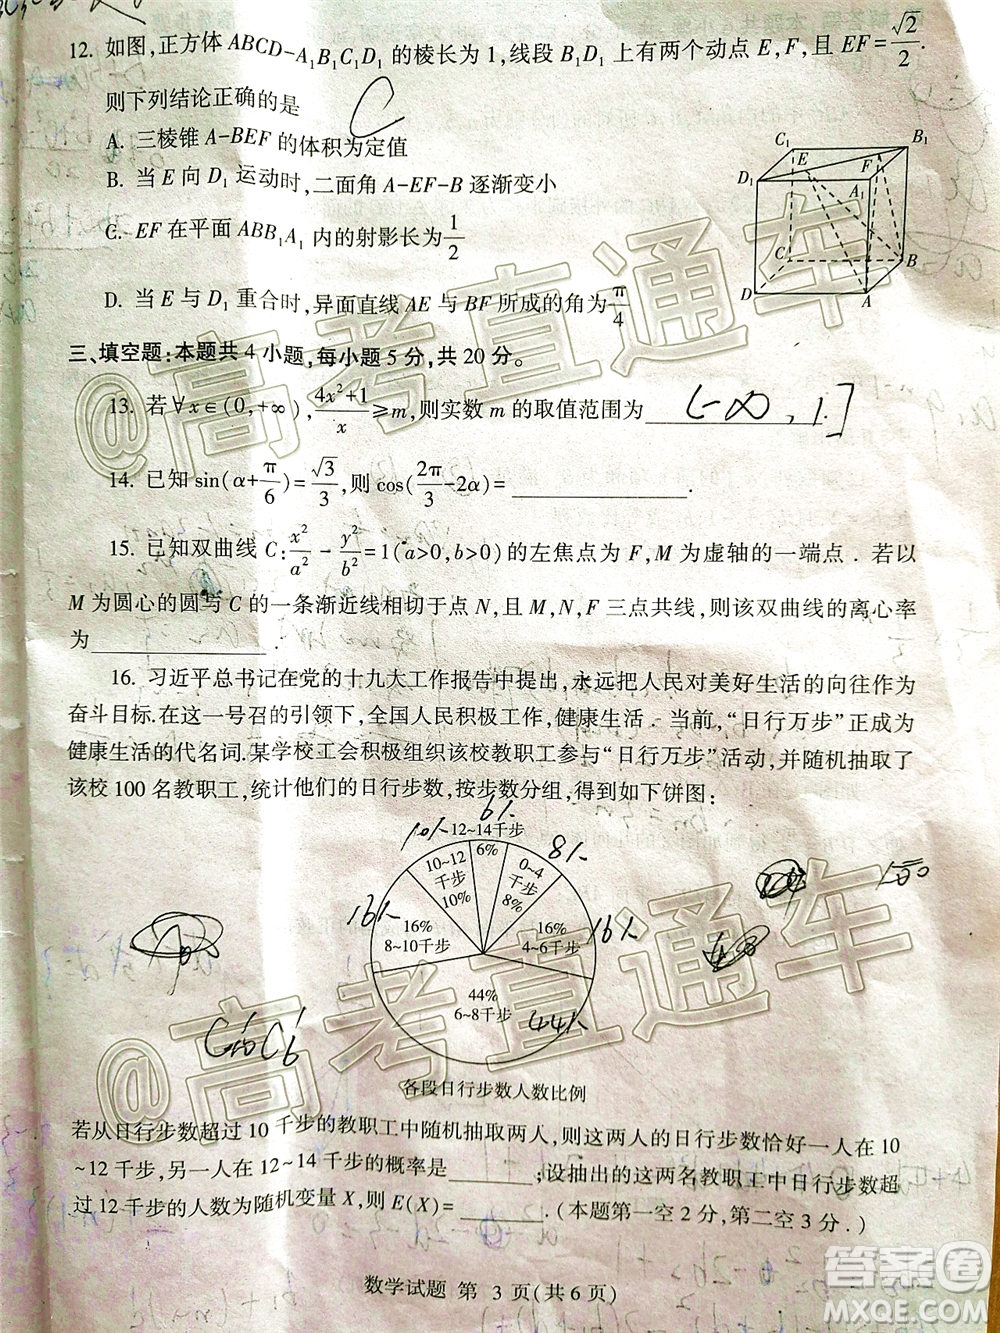 12. 如图,正方体 ABCD-A₁B₁C₁D₁ 的棱长为 1,线段 B₁D₁ 上有两个动点 E,F,且 EF=√2/2.
则下列结论正确的是
C
A. 三棱锥 A-BEF 的体积为定值
B. 当 E 向 D₁ 运动时,二面角 A-EF-B 逐渐变小
C. EF 在平面 ABB₁A₁ 内的射影长为 1/2
D. 当 E 与 D₁ 重合时,异面直线 AE 与 BF 所成的角为 π/4
C₁ B₁ E F D₁ A₁ C B D A
三、填空题:本题共 4 小题,每小题 5 分,共 20 分。
13. 若 ∀x∈(0,+∞), (4x²+1)/x ≥m,则实数 m 的取值范围为________.
(-∞, 1]
14. 已知 sin(α+π/6)=√3/3,则 cos(2π/3-2α)=________.
15. 已知双曲线 C: x²/a²-y²/b²=1(a>0,b>0)的左焦点为 F,M 为虚轴的一端点. 若以
M 为圆心的圆与 C 的一条渐近线相切于点 N,且 M,N,F 三点共线,则该双曲线的离心率
为________.
16. 习近平总书记在党的十九大工作报告中提出,永远把人民对美好生活的向往作为
奋斗目标.在这一号召的引领下,全国人民积极工作,健康生活. 当前,“日行万步”正成为
健康生活的代名词.某学校工会积极组织该校教职工参与“日行万步”活动,并随机抽取了
该校 100 名教职工,统计他们的日行步数,按步数分组,得到如下饼图:
6%
10% 12~14千步
8%
6%
10~12千步 10%
0~4千步 8%
16% 16%
16% 8~10千步
16% 4~6千步
44% 6~8千步
44%
C¹₁₀C¹₆
各段日行步数人数比例
若从日行步数超过 10 千步的教职工中随机抽取两人,则这两人的日行步数恰好一人在 10
~12 千步,另一人在 12~14 千步的概率是________;设抽出的这两名教职工中日行步数超
过 12 千步的人数为随机变量 X,则 E(X)=________.(本题第一空 2 分,第二空 3 分.)
数学试题 第 3 页(共 6 页)
@高考直通车
@高考直通车
答案圈
MXQE.COM